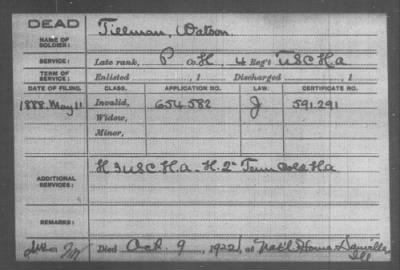 DEAD
NAME OF SOLDIER: Tillman, Watson
SERVICE: Late rank, P Co. H, 4 Reg't USCHa
TERM OF SERVICE: Enlisted , 1 Discharged , 1
DATE OF FILING. CLASS. APPLICATION NO. LAW. CERTIFICATE NO.
1888. May 11 Invalid, 654.582 J 591.291
Widow,
Minor,
ADDITIONAL SERVICES: H 3 USC.Ha. H. 2" Tenn Cold Ha
REMARKS:
Died Oct. 9, 1922, at Nat'l Home Danville
Ill